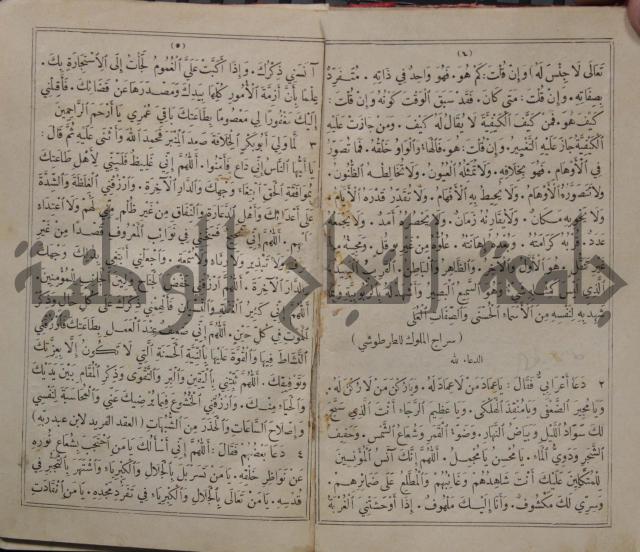 (٤)
تَعَالَى لَا جِنْسَ لَهُ وَإِنْ قُلْتَ: كَمْ هُوَ. فَهُوَ وَاحِدٌ فِي ذَاتِهِ. مُتَفَرِّدٌ
بِصِفَاتِهِ. وَإِنْ قُلْتَ: مَتَى كَانَ. فَقَدْ سَبَقَ الْوَقْتَ كَوْنُهُ وَإِنْ قُلْتَ:
كَيْفَ هُوَ. فَمَنْ كَيَّفَ الْكَيْفِيَّةَ لَا يُقَالُ لَهُ كَيْفَ. وَمَنْ جَازَتْ عَلَيْهِ
الْكَيْفِيَّةُ جَازَ عَلَيْهِ التَّغْيِيرُ. وَإِنْ قُلْتَ: هُوَ. فَالْهَاءُ وَالْوَاوُ خَلْقُهُ. فَمَا تُصُوِّرَ
فِي الْأَوْهَامِ. فَهُوَ بِخِلَافِهِ. وَلَا تُمَثِّلُهُ الْعُيُونُ. وَلَا تُخَالِطُهُ الظُّنُونُ.
وَلَا تَتَصَوَّرُهُ الْأَوْهَامُ. وَلَا تُحِيطُ بِهِ الْأَفْهَامُ. وَلَا تُقَدِّرُ قَدْرَهُ الْأَيَّامُ.
وَلَا يَحْوِيهِ مَكَانٌ. وَلَا يُقَارِنُهُ زَمَانٌ. وَلَا يَحْصُرُهُ أَمَدٌ. وَلَا يَجْمَعُهُ
عَدَدٌ. قُرْبُهُ كَرَامَتُهُ. وَبُعْدُهُ إِهَانَتُهُ. عُلُوُّهُ مِنْ غَيْرِ تَوَقُّلٍ. وَمَجِيئُهُ مِنْ
غَيْرِ تَنَقُّلٍ. هُوَ الْأَوَّلُ وَالْآخِرُ. وَالظَّاهِرُ وَالْبَاطِنُ. الْقَرِيبُ الْبَعِيدُ
الَّذِي لَيْسَ كَمِثْلِهِ شَيْءٌ. وَهُوَ السَّمِيعُ الْبَصِيرُ
شَهِدَ بِهِ لِنَفْسِهِ مِنَ الْأَسْمَاءِ الْحُسْنَى وَالصِّفَاتِ الْعُلَى
(سراج الملوك للطرطوشي)
الدعاء لله
٢ دَعَا أَعْرَابِيٌّ فَقَالَ: يَا عِمَادَ مَنْ لَا عِمَادَ لَهُ. وَيَا رُكْنَ مَنْ لَا رُكْنَ لَهُ.
وَيَا مُجِيرَ الضَّعْفَى. وَيَا مُنْقِذَ الْهَلْكَى. وَيَا عَظِيمَ الرَّجَاءِ أَنْتَ الَّذِي سَبَّحَ
لَكَ سَوَادُ اللَّيْلِ وَبَيَاضُ النَّهَارِ. وَضَوْءُ الْقَمَرِ وَشُعَاعُ الشَّمْسِ. وَحَفِيفُ
الشَّجَرِ وَدَوِيُّ الْمَاءِ. يَا مُحْسِنُ يَا مُجْمِلُ. اللَّهُمَّ إِنَّكَ آنَسُ الْمُؤْنِسِينَ
لِلْمُتَوَكِّلِينَ عَلَيْكَ أَنْتَ شَاهِدُهُمْ وَغَائِبُهُمْ وَالْمُطَّلِعُ عَلَى ضَمَائِرِهِمْ.
وَسِرِّي لَكَ مَكْشُوفٌ. وَأَنَا إِلَيْكَ مَلْهُوفٌ. إِذَا أَوْحَشَتْنِي الْغُرْبَةُ
(٥)
آنَسَنِي ذِكْرُكَ. وَإِذَا أَكَبَّتْ عَلَيَّ الْغُمُومُ لَجَأْتُ إِلَى الْاِسْتِجَارَةِ بِكَ.
عِلْمًا بِأَنَّ أَزِمَّةَ الْأُمُورِ كُلِّهَا بِيَدِكَ وَمَصْدَرَهَا عَنْ قَضَائِكَ. فَأَقِلَّنِي
إِلَيْكَ مَغْفُورًا لِي مَعْصُومًا بِطَاعَتِكَ بَاقِيَ عُمْرِي يَا أَرْحَمَ الرَّاحِمِينَ
٣ لَمَّا وَلِيَ أَبُو بَكْرٍ الْخِلَافَةَ صَعِدَ الْمِنْبَرَ فَحَمِدَ اللهَ وَأَثْنَى عَلَيْهِ ثُمَّ قَالَ:
يَا أَيُّهَا النَّاسُ إِنِّي دَاعٍ فَأَمِّنُوا. اللَّهُمَّ إِنِّي غَلِيظٌ فَلَيِّنِّي لِأَهْلِ طَاعَتِكَ
بِمُوَافَقَةِ الْحَقِّ ابْتِغَاءَ وَجْهِكَ وَالدَّارِ الْآخِرَةِ. وَارْزُقْنِي الْغِلْظَةَ وَالشِّدَّةَ
عَلَى أَعْدَائِكَ وَأَهْلِ الدَّعَارَةِ وَالنِّفَاقِ مِنْ غَيْرِ ظُلْمٍ مِنِّي لَهُمْ وَلَا اعْتِدَاءٍ
عَلَيْهِمْ. اللَّهُمَّ إِنِّي شَحِيحٌ فَسَخِّنِي فِي نَوَائِبِ الْمَعْرُوفِ قَصْدًا مِنْ غَيْرِ
سَرَفٍ وَلَا تَبْذِيرٍ وَلَا رِيَاءٍ وَلَا سُمْعَةٍ. وَاجْعَلْنِي أَبْتَغِي بِذٰلِكَ وَجْهَكَ
وَالدَّارَ الْآخِرَةَ. اللَّهُمَّ ارْزُقْنِي خَفْضَ الْجَنَاحِ وَلِينَ الْجَانِبِ لِلْمُؤْمِنِينَ.
اللَّهُمَّ إِنِّي كَثِيرُ الْغَفْلَةِ وَالنِّسْيَانِ فَأَلْهِمْنِي ذِكْرَكَ عَلَى كُلِّ حَالٍ وَذِكْرَ
الْمَوْتِ فِي كُلِّ حِينٍ. اللَّهُمَّ إِنِّي ضَعِيفٌ عِنْدَ الْعَمَلِ بِطَاعَتِكَ فَارْزُقْنِي
النَّشَاطَ فِيهَا وَالْقُوَّةَ عَلَيْهَا بِالنِّيَّةِ الْحَسَنَةِ الَّتِي لَا تَكُونُ إِلَّا بِعِزَّتِكَ
وَتَوْفِيقِكَ. اللَّهُمَّ ثَبِّتْنِي بِالْيَقِينِ وَالْبِرِّ وَالتَّقْوَى وَذِكْرِ الْمَقَامِ بَيْنَ يَدَيْكَ
وَالْحَيَاءِ مِنْكَ. وَارْزُقْنِي الْخُشُوعَ فِيمَا يُرْضِيكَ عَنِّي وَالْمُحَاسَبَةَ لِنَفْسِي
وَإِصْلَاحَ السَّاعَاتِ وَالْحَذَرَ مِنَ الشُّبُهَاتِ (العقد الفريد لابن عبد ربه)
٤ دَعَا بَعْضُهُمْ فَقَالَ: اللَّهُمَّ إِنِّي أَسْأَلُكَ يَا مَنِ احْتَجَبَ بِشُعَاعِ نُورِهِ
عَنْ نَوَاظِرِ خَلْقِهِ. يَا مَنْ تَسَرْبَلَ بِالْجَلَالِ وَالْكِبْرِيَاءِ وَاشْتَهَرَ بِالتَّجَبُّرِ فِي
قُدْسِهِ. يَا مَنْ تَعَالَى بِالْجَلَالِ وَالْكِبْرِيَاءِ فِي تَفَرُّدِ مَجْدِهِ. يَا مَنِ انْقَادَتِ
جامعة النجاح الوطنية